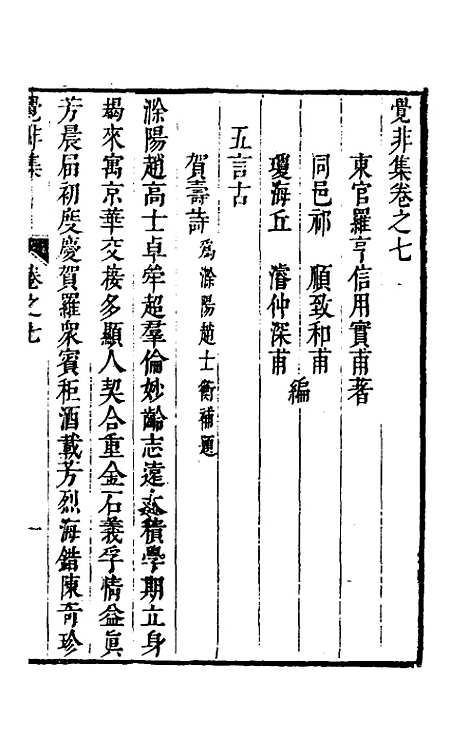 覺非集卷之七
東官羅亨信用實甫著
同邑祁　順致和甫
瓊海丘　濬仲深甫
編
五言古
賀壽詩為滁陽趙士衡補題
滁陽趙高士卓犖超羣倫妙齡志遠大積學期立身
朅來寓京華交接多顯人契合重金石義孚情益眞
芳晨屆初度慶賀羅衆賓秬酒載芳烈海錯陳奇珍
覺非集
卷之七
一